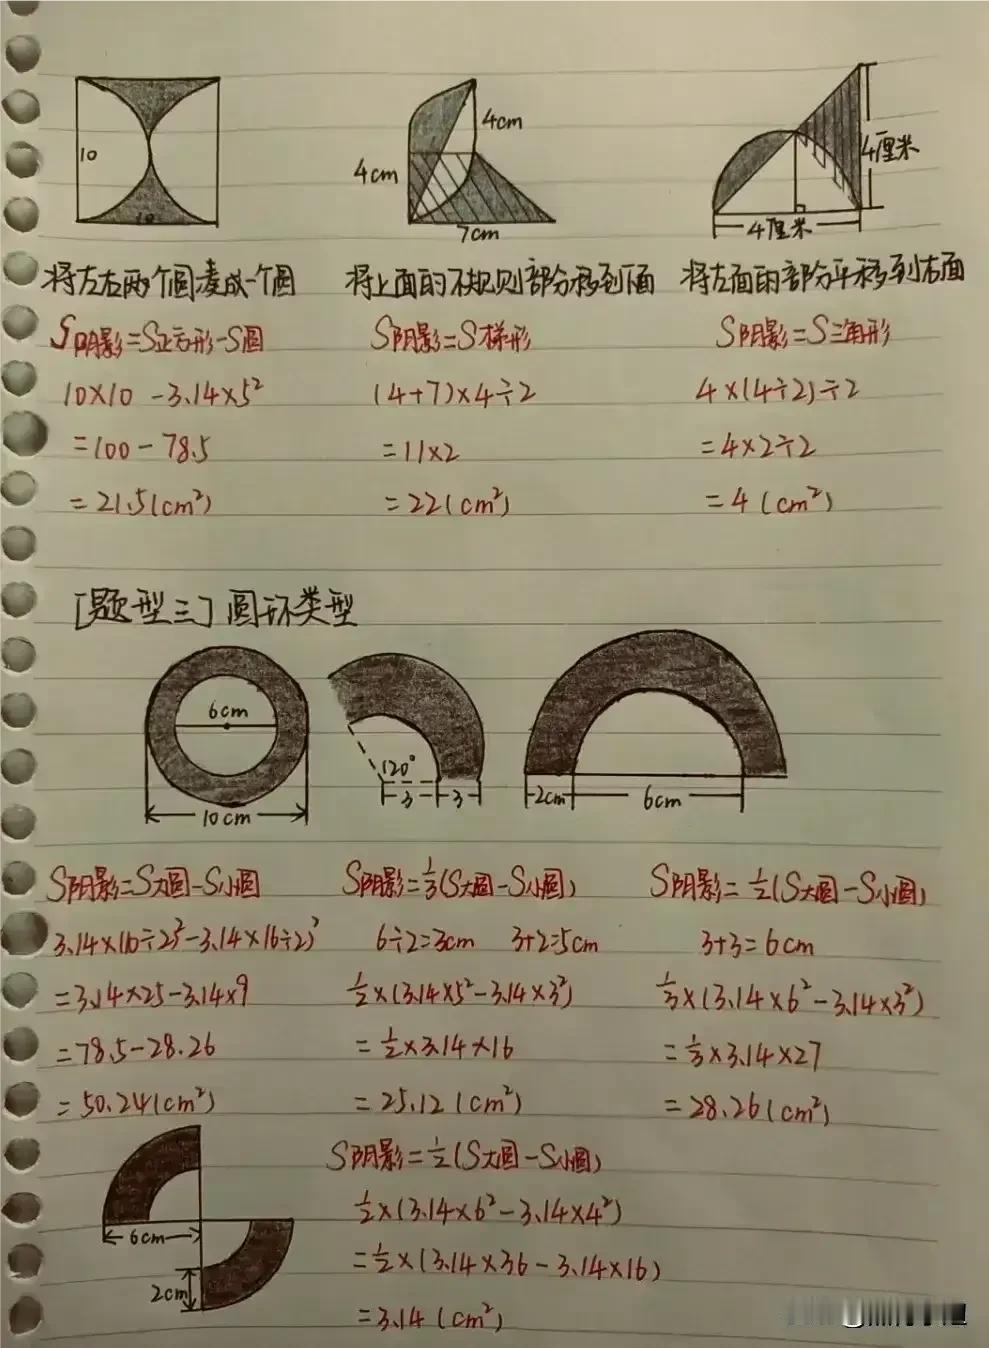 10
10
4cm
4cm
7cm
4厘米
4厘米
将左右两个圆凑成一个圆
S阴影=S正方形-S圆
10×10-3.14×5²
=100-78.5
=21.5(cm²)
将上面的不规则部分移到下面
S阴影=S梯形
(4+7)×4÷2
=11×2
=22(cm²)
将左面的部分平移到右面
S阴影=S三角形
4×(4÷2)÷2
=4×2÷2
=4(cm²)
[题型三]圆环类型
6cm
10cm
120°
3
3
2cm
6cm
S阴影=S大圆-S小圆
3.14×(10÷2)²-3.14×(6÷2)²
=3.14×25-3.14×9
=78.5-28.26
=50.24(cm²)
S阴影=⅓(S大圆-S小圆)
6÷2=3cm 3+2=5cm
½×(3.14×5²-3.14×3²)
=½×3.14×16
=25.12(cm²)
S阴影=½(S大圆-S小圆)
3+3=6cm
⅓×(3.14×6²-3.14×3²)
=⅓×3.14×27
=28.26(cm²)
6cm
2cm
S阴影=½(S大圆-S小圆)
½×(3.14×6²-3.14×4²)
=½×(3.14×36-3.14×16)
=3.14(cm²)